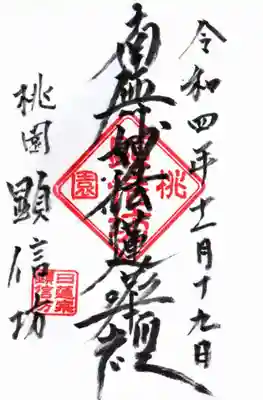 令和四年十一月十九日
南無妙法蓮華経
桃園
顕信坊
桃
園
日蓮宗
顕信坊